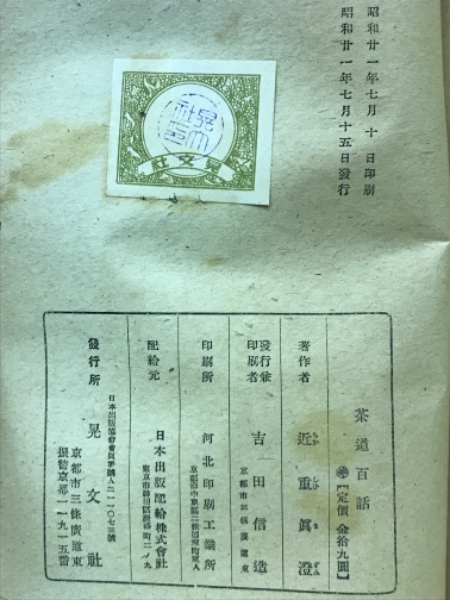 昭和廿一年七月十日印刷
昭和廿一年七月十五日發行
晃文社
茶道百話
【定價 金拾九圓】
著作者 近重眞澄
發行兼印刷者 吉田信造
京都市三條廣道東
印刷所 河北印刷工業所
配給元 日本出版配給株式會社
東京市神田區淡路町二ノ九
日本出版協會會員
發行所 晃文社
京都市三條廣道東
振替京都一一九一五番